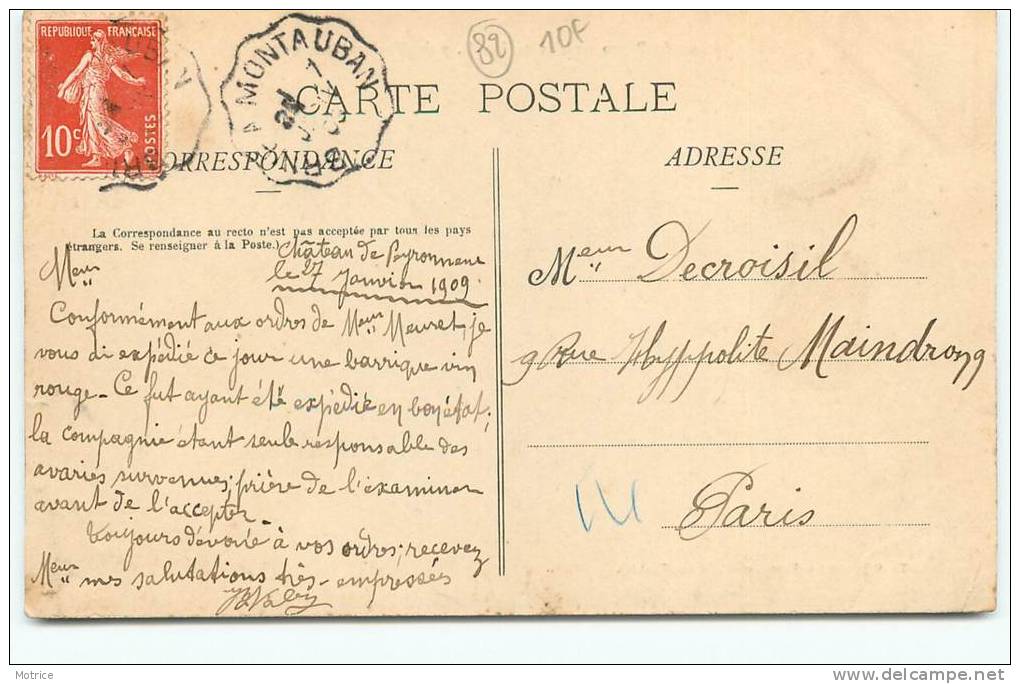 REPUBLIQUE FRANÇAISE
10c
POSTES
A MONTAUBAN
82
10F
CARTE POSTALE
CORRESPONDANCE
ADRESSE
La Correspondance au recto n'est pas acceptée par tous les pays
étrangers. Se renseigner à la Poste.)
Château de Peyronnenc
le 27 Janvier 1909
Meur
Conformément aux ordres de Meur Meuret, je
vous ai expédié ce jour une barrique vin
rouge. Ce fut ayant été expédié en bon état,
la compagnie étant seule responsable des
avaries survenues; prière de l'examiner
avant de l'accepter
Toujours dévoué à vos ordres; recevez
Meur mes salutations très-empressées
Meur Decroisil
9 Rue Hyppolite Maindron 9
Paris
Motrice
www.delcampe.net